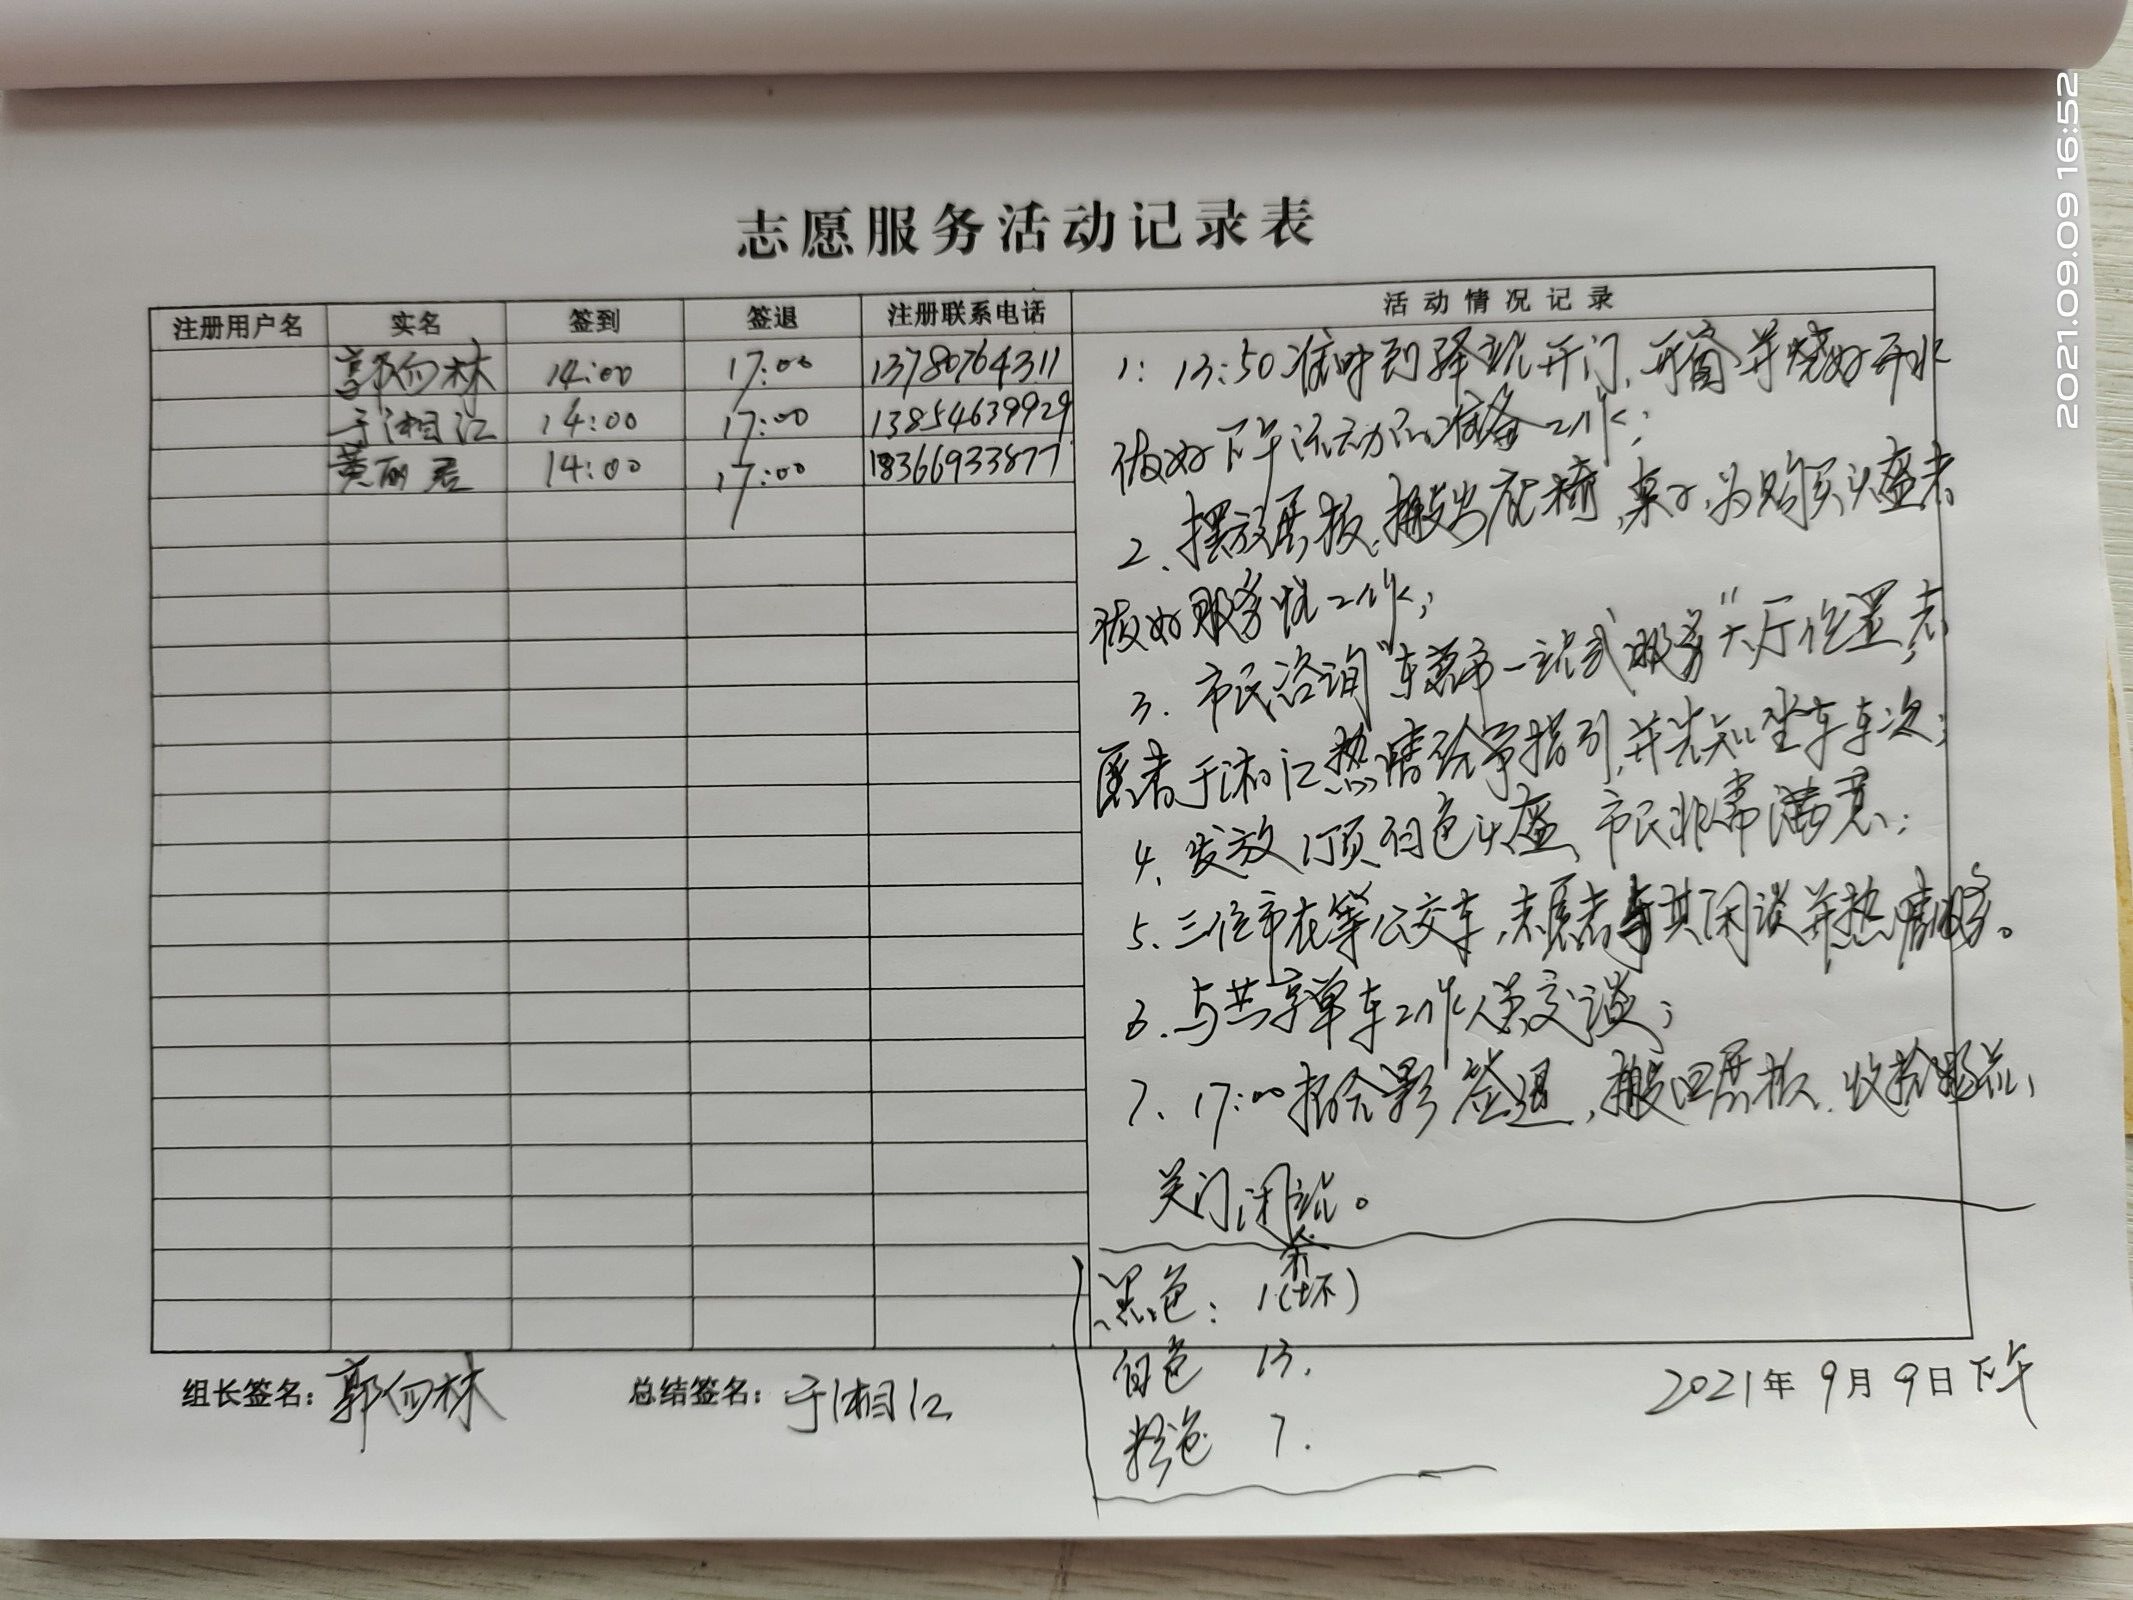 志愿服务活动记录表
注册用户名 实名 签到 签退 注册联系电话 活动情况记录
郭向林 14:00 17:00 13780764311
于湘江 14:00 17:00 13854639929
黄丽君 14:00 17:00 18366933877
1: 13:50准时到驿站开门,开窗并烧好开水
做好下午活动的准备工作;
2、摆放展板,搬出座椅,桌子,为购买头盔者
做好服务性工作;
3、市民咨询"东营市一站式服务"大厅位置,志
愿者于湘江热情给予指引,并告知坐车车次;
4、发放1顶白色头盔,市民非常满意;
5、三位市在等公交车,志愿者与其闲谈并热情服务。
6、与共享单车工作人员交谈;
7、17:00拍合影签退,搬回展板,收拾物品,
关门闭站。
黑色: 1(坏)
白色 13.
粉色 7.
组长签名: 郭向林 总结签名: 于湘江 2021年9月9日下午
2021.09.09 16:52